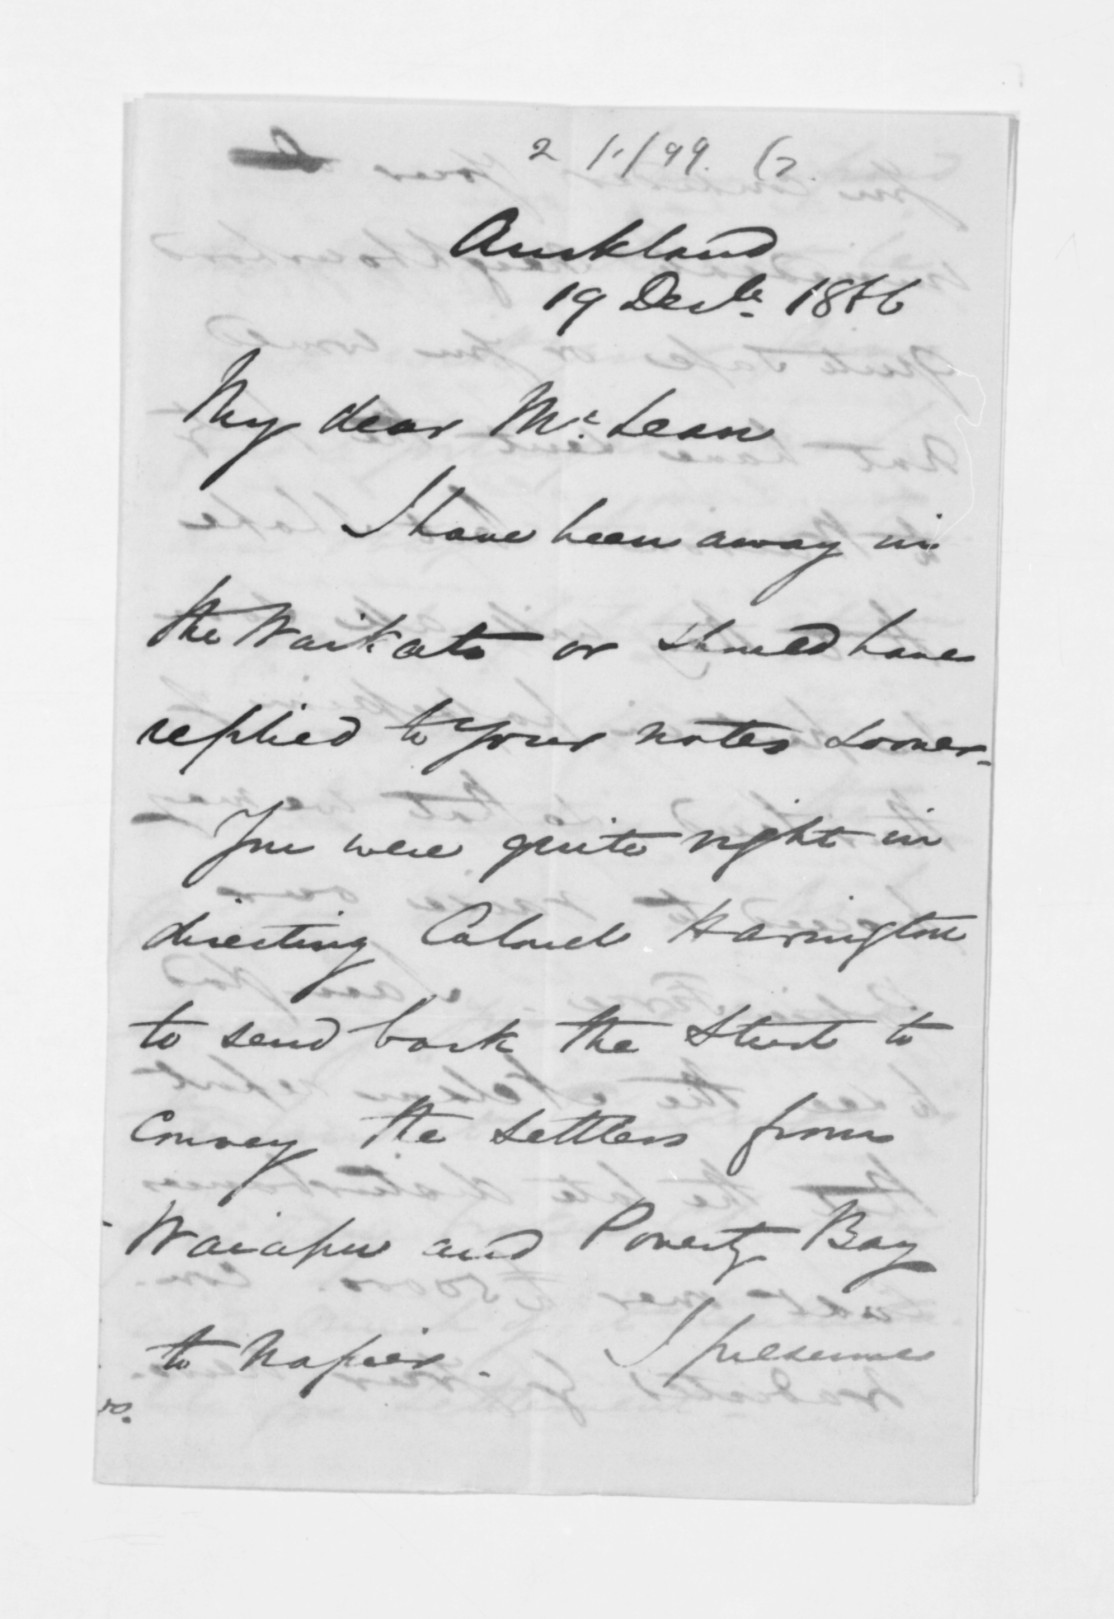 Auckland
19 Decbr. 1866
My dear Mr. Lean
I have been away in
the Waikato or should have
replied to your notes sooner.
You were quite right in
directing Colonel Harington
to send back the Sturt to
convey the settlers from
Waiapu and Poverty Bay
to Napier. I presume